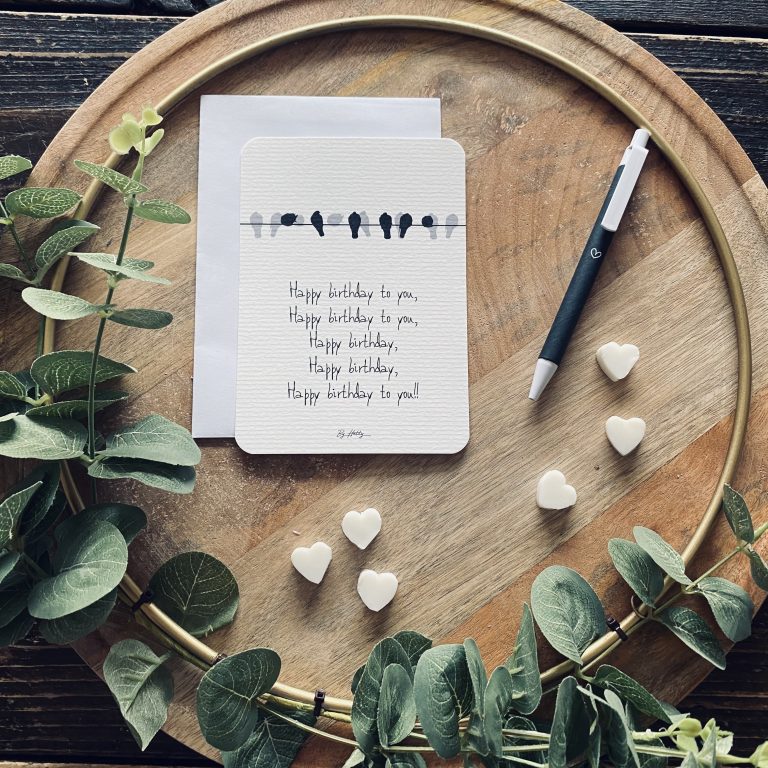 Happy birthday to you,
Happy birthday to you,
Happy birthday,
Happy birthday,
Happy birthday to you!!
By Hetty